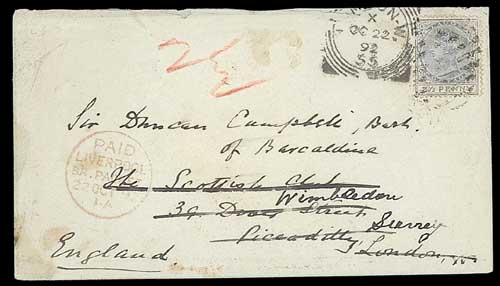 LONDON-W
X
OC 22
92
55
PENNY
2½
Sir Duncan Campbell, Bart.
of Barcaldine
PAID
LIVERPOOL
BR. PACKET
22 OC
1 A
The Scottish Club
Wimbledon
39 Dover Street
Surrey
Piccadilly
London, W
England